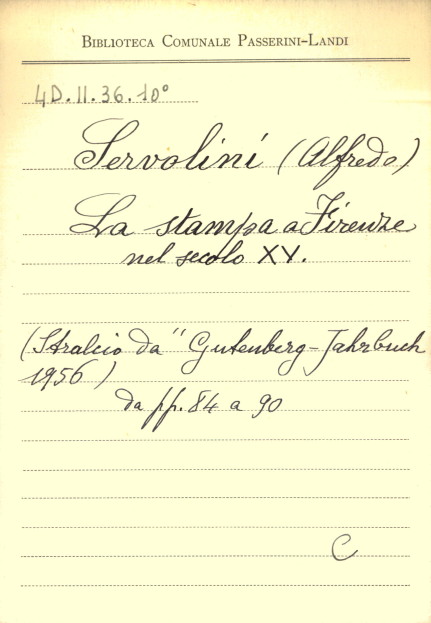 BIBLIOTECA COMUNALE PASSERINI-LANDI
4D.II.36.10°
Servolini (Alfredo)
La stampa a Firenze
nel secolo XV.
(Stralcio da "Gutenberg-Jahrbuch
1956)
da pp. 84 a 90
C